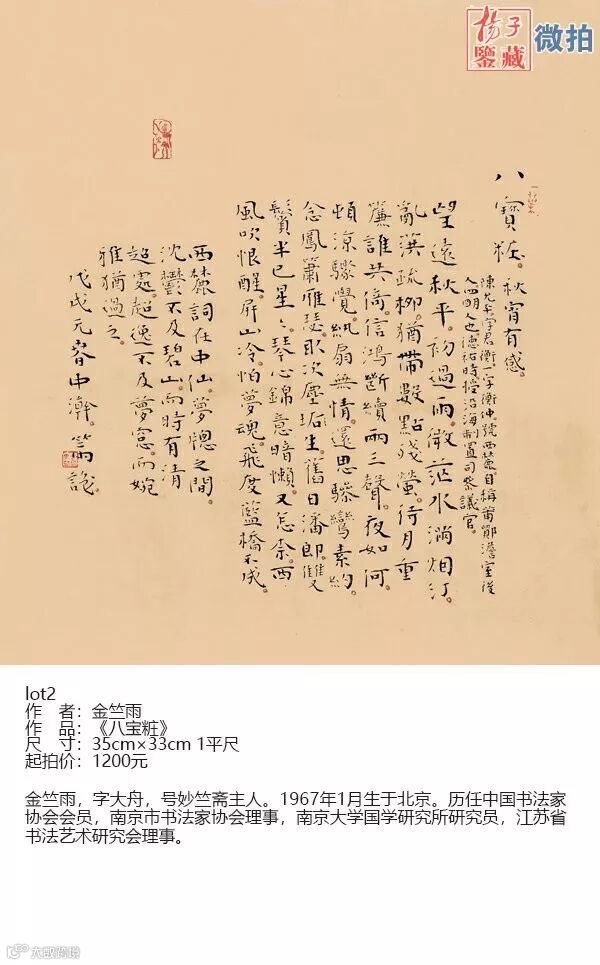 揚子
鑒藏 微拍
八寶粧。秋宵有感。
陳允平字君衡。一字衡仲號西麓自稱莆鄞澹室後
人四明人也德祐時授沿海制置司參議官。
望遠秋平。初過雨微茫水滿烟汀。
亂洪疏柳。猶帶數點殘螢。待月重
簾誰共倚。信鴻斷續兩三聲。夜如何。
頓涼驟覺紈扇無情。還思驂鸞素約
念鳳簫雅瑟。取次塵垢生。舊日潘郎。雙
鬢半已星星。琴心錦意暗懶又怎奈西
風吹恨醒。屏山冷怕夢魂。飛度藍橋不成
西麓詞在中仙。夢窗之間。
沈鬱不及碧山。而時有清
超處。超逸不及夢窗。而婉
雅猶過之。
戊戌元春中澣。竺雨記。
lot2
作 者：金竺雨
作 品：《八宝粧》
尺 寸：35cm×33cm 1平尺
起拍价：1200元
金竺雨，字大舟，号妙竺斋主人。1967年1月生于北京。历任中国书法家
协会会员，南京市书法家协会理事，南京大学国学研究所研究员，江苏省
书法艺术研究会理事。
大数跨境